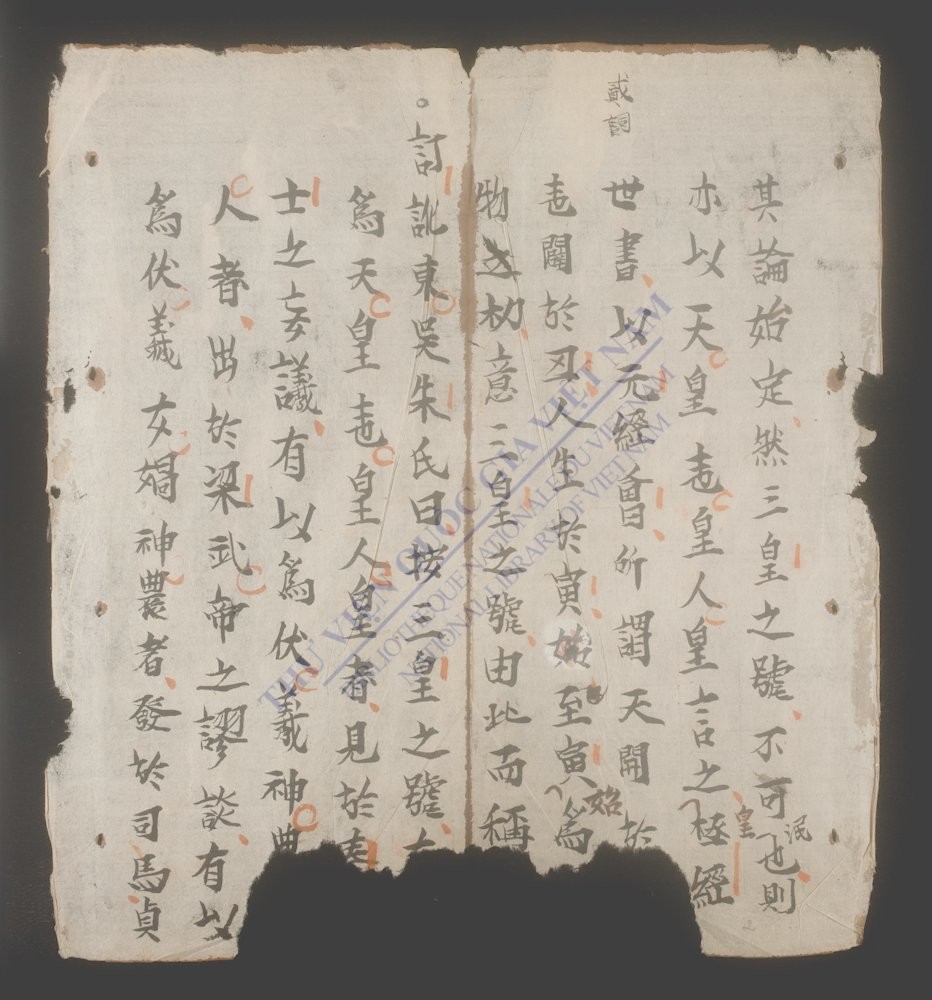 其論始定然三皇之號不可泯也則
亦以天皇𡋤皇人皇言之皇極經
世書以元經會所謂天開於
𡋤闢於丑人生於寅始至寅始為
物之初意三皇之號由此而稱
貳詞
。訂訛東吳朱氏曰按三皇之號
為天皇𡋤皇人皇者見於秦
士之妄議有以為伏羲神農
人者出於梁武帝之謬談有以
為伏羲女媧神農者發於司馬貞
THƯ VIỆN QUỐC GIA VIỆT NAM
BIBLIOTHEQUE NATIONALE DU VIETNAM
NATIONAL LIBRARY OF VIETNAM
2